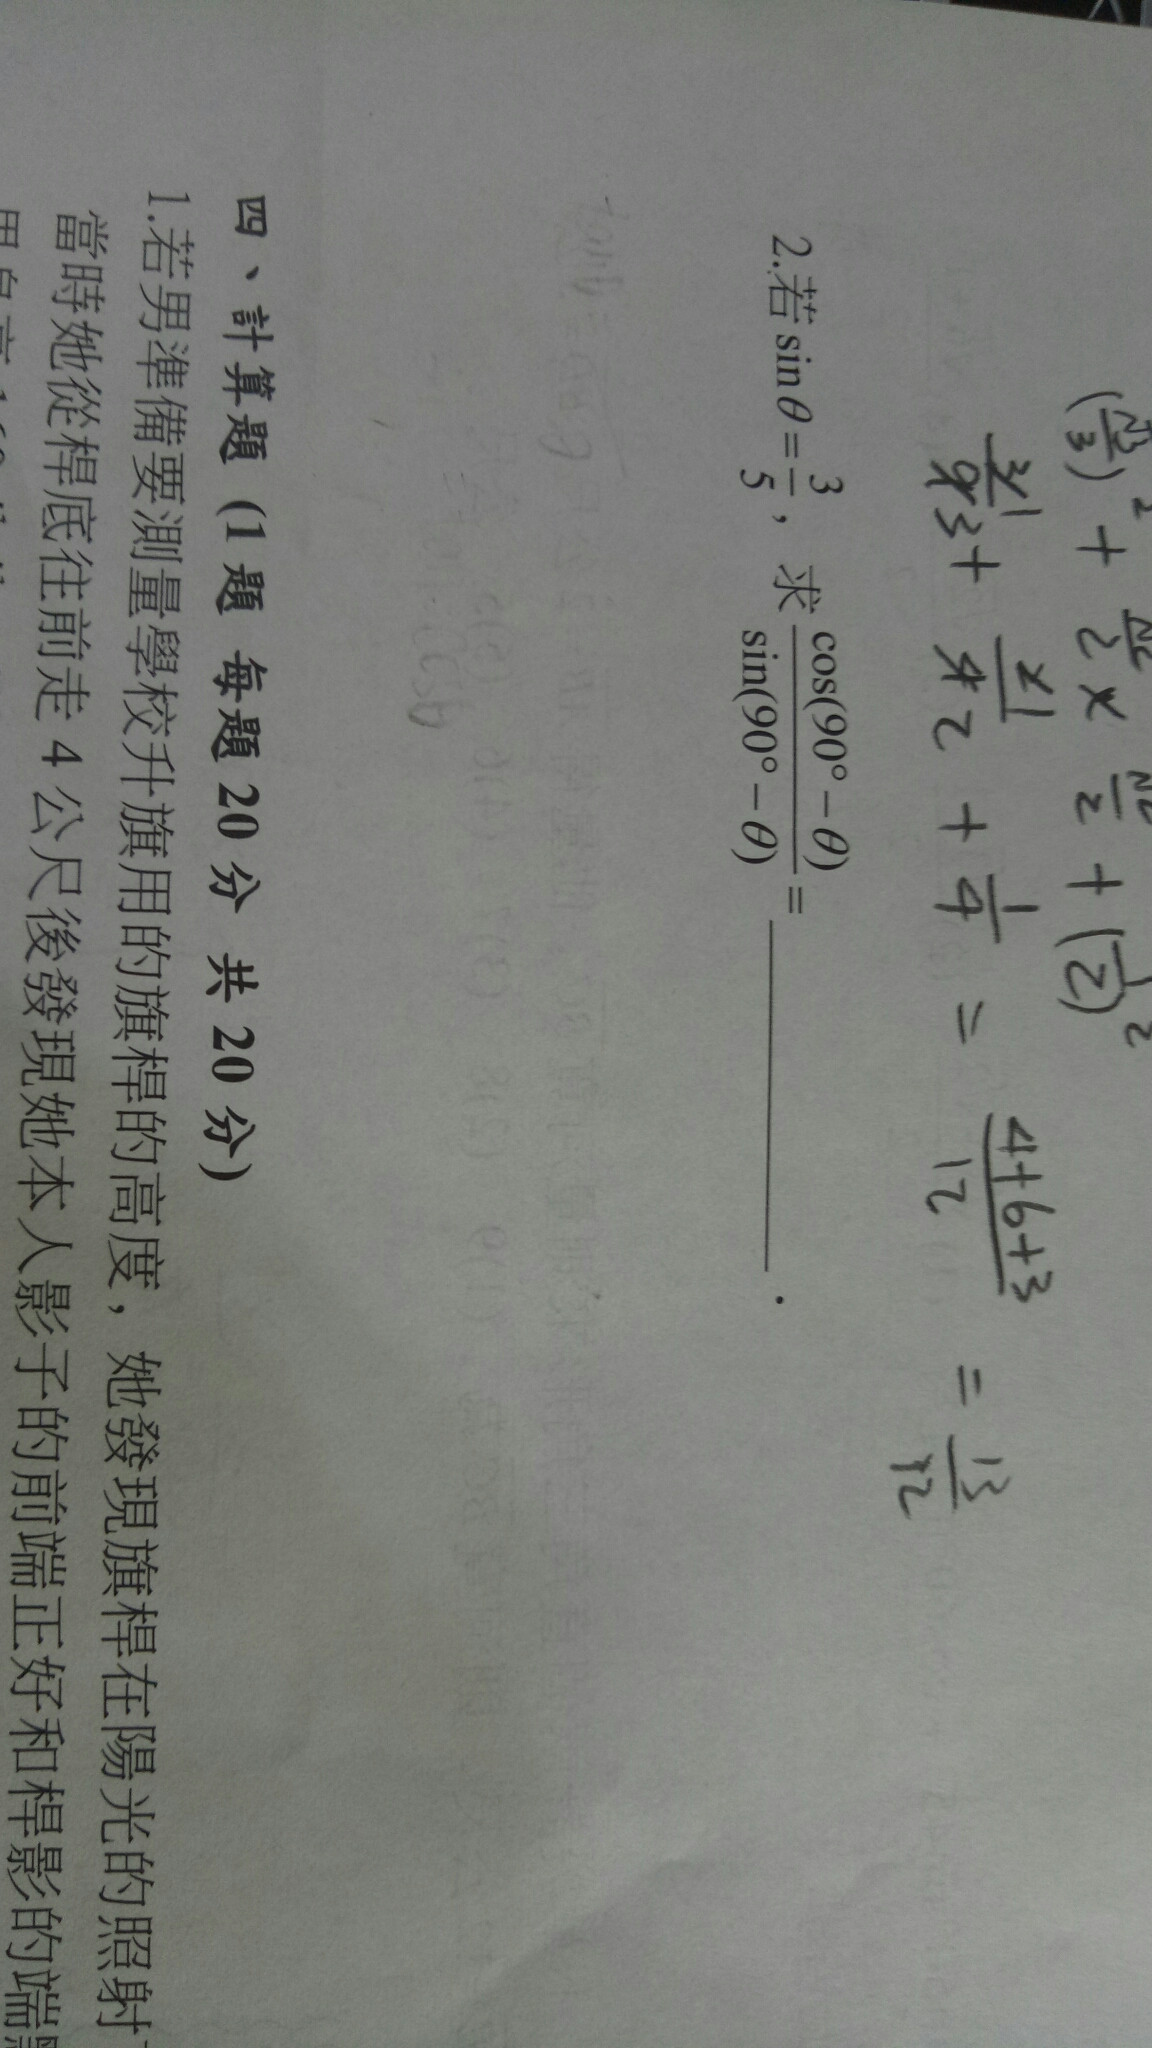 (√3/3)² + √2/2 × √2/2 + (1/2)²
3/9 + 2/4 + 1/4 = 4+6+3/12 = 13/12
2.若 sin θ = 3/5 ，求 cos(90° − θ)/sin(90° − θ) = ________．
四、計算題 (1 題 每題 20 分 共 20 分)
1.若男準備要測量學校升旗用的旗桿的高度，她發現旗桿在陽光的照射
當時她從桿底往前走 4 公尺後發現她本人影子的前端正好和桿影的端